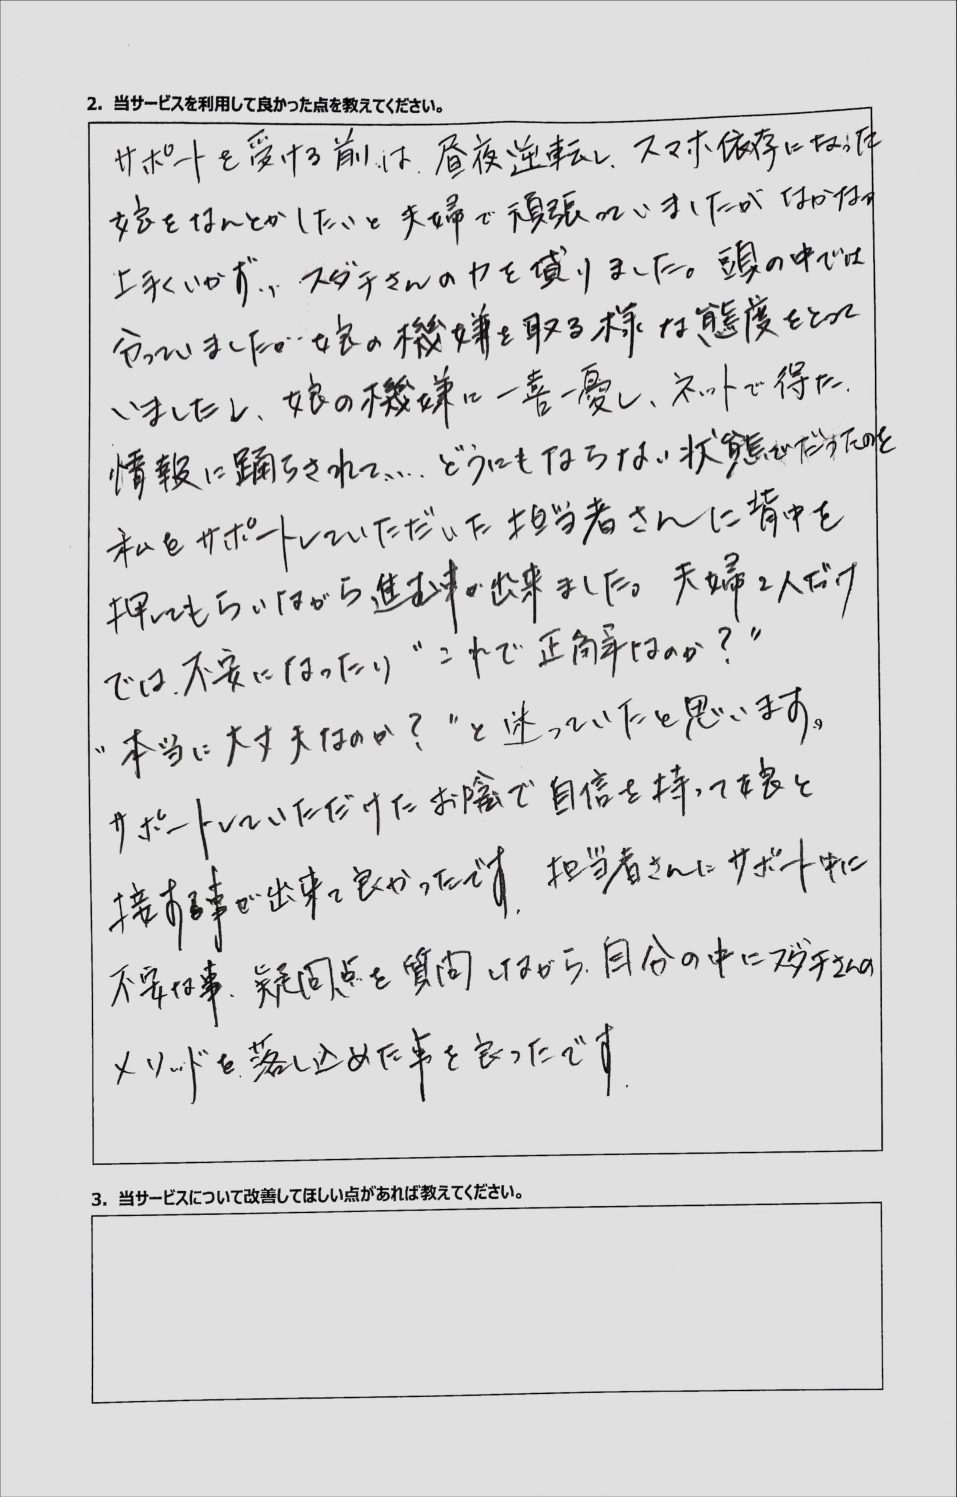 2. 当サービスを利用して良かった点を教えてください。
サポートを受ける前は、昼夜逆転し、スマホ依存になった
娘をなんとかしたいと夫婦で頑張っていましたがなかなか
上手くいかず… スダチさんの力を借りました。頭の中では
分っていましたが…娘の機嫌を取る様な態度をとって
いましたし、娘の機嫌に一喜一憂し、ネットで得た
情報に踊らされて…。どうにもならない状態でだったのを
私をサポートしていただいた担当者さんに背中を
押してもらいながら進む事が出来ました。夫婦2人だけ
では、不安になったり"これで正解なのか？"
"本当に大丈夫なのか？"と迷っていたと思います。
サポートしていただけたお陰で自信を持って娘と
接する事が出来て良かったです。担当者さんにサポート中に
不安な事、疑問点を質問しながら、自分の中にスダチさんの
メソッドを落し込めた事を良ったです。
3. 当サービスについて改善してほしい点があれば教えてください。